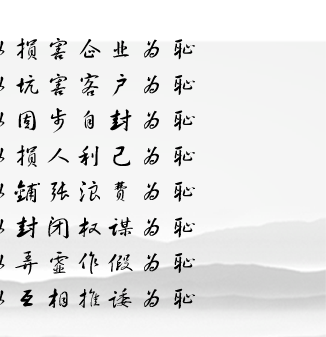 以损害企业为耻
以坑害客户为耻
以固步自封为耻
以损人利己为耻
以铺张浪费为耻
以封闭权谋为耻
以弄虚作假为耻
以互相推诿为耻